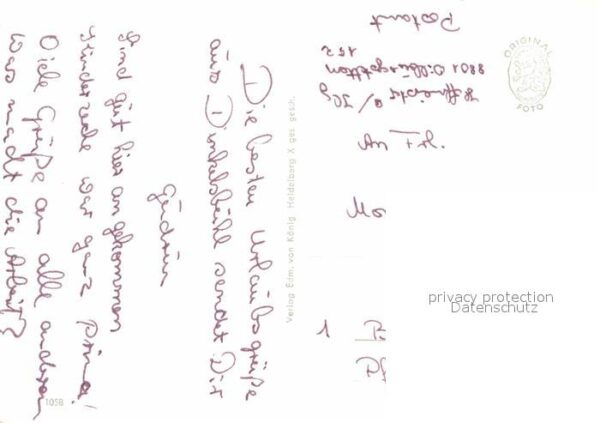 Die besten Urlaubsgrüße
aus Dinkelsbühl sendet Dir
Gudrun
Sind gut hier angekommen
war ganz prima!
Viele Grüße an alle anderen
Was macht die Arbeit?
An Frl.
1
Postamt
8801
Verlag Edm. von König Heidelberg X ges. gesch.
ORIGINAL
FOTO
1058
privacy protection
Datenschutz